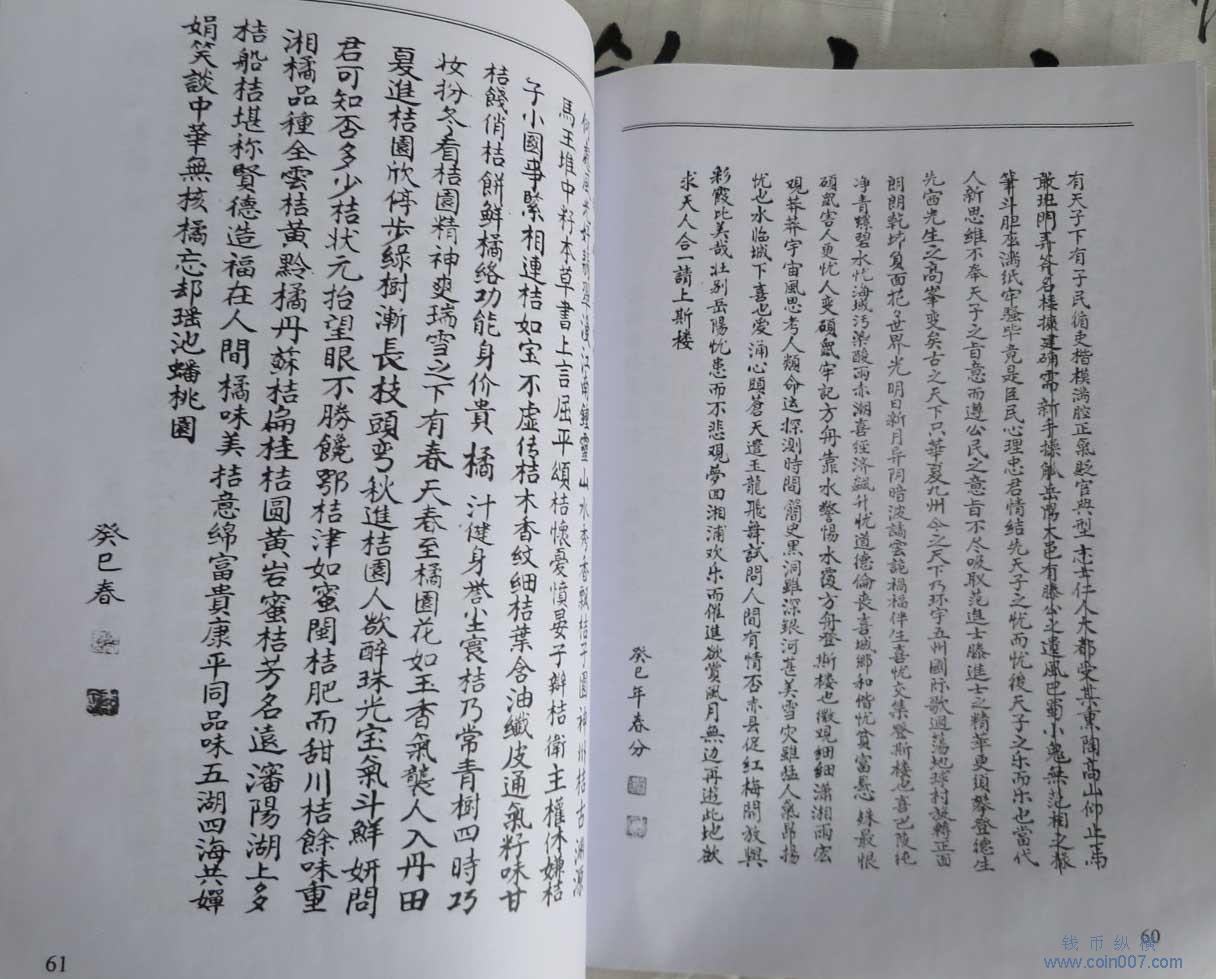 有天子下有子民循吏楷模满腔正氣贬官典型志士仁人大都受其熏陶高山仰止焉
敢班門弄斧名楼擴建确需新手操觚岳陽本邑有滕公之遺風巴蜀小鬼無范相之椽
筆斗胆塗满纸牢骚毕竟是臣民心理忠君情结先天子之忧而忧後天子之乐而乐也當代
人新思维不奉天子之旨意而遵公民之意旨不尽吸取范進士滕進士之精華更須攀登德生
先寍先生之高峯变矣古之天下只華夏九州今之天下乃环宇五州國际歌迴荡地球村旋轉正面
朗朗乾坤負面花子世界光明日新月异阴暗波譎雲詭禍福伴生喜忧交集登斯楼也喜巴陵纯
净青螺碧水忧海域污染酸雨赤潮喜经济飆升忧道德倫丧喜城鄉和偕忧貧富悬殊最恨
硕鼠害人更忧人变碩鼠牢記方舟靠水警惕水覆方舟登斯楼也微观細細瀟湘雨宏
观莽莽宇宙風思考人類命运探测時間簡史黑洞雖深銀河茫美雪灾雖猛人氣昂揚
忧也水临城下喜也爱涌心頭蒼天遣玉龍飛舞試問人間有情否赤县促紅梅開放與
彩霞比美哉壮别岳陽忧患而不悲观夢回湘浦欢乐而催進欲賞風月無边再遊此地欲
求天人合一請上斯楼
癸巳年春分
60
馬王堆中籽本草書上言屈平頌桔懷憂憤晏子辯桔衛主權休嫌桔
子小國事緊相連桔如宝不虚传桔木香紋細桔葉含油纖皮通氣籽味甘
桔餞俏桔餅鮮橘络功能身价貴橘汁健身誉尘寰桔乃常青樹四時巧
妆扮冬看桔園精神爽瑞雪之下有春天春至橘園花如玉香氣襲人入丹田
夏進桔園欣停步綠樹漸長枝頭弯秋進桔園人欲醉珠光宝氣斗鮮妍問
君可知否多少桔状元抬望眼不勝饞鄂桔津如蜜閩桔肥而甜川桔餘味重
湘橘品種全雲桔黄黔橘丹蘇桔扁桂桔圆黄岩蜜桔芳名遠瀋陽湖上多
桔船桔堪称賢德造福在人間橘味美桔意綿富貴康平同品味五湖四海共嬋
娟笑談中華無核橘忘却瑶池蟠桃園
癸巳春
61
钱币纵横
www.coin007.com